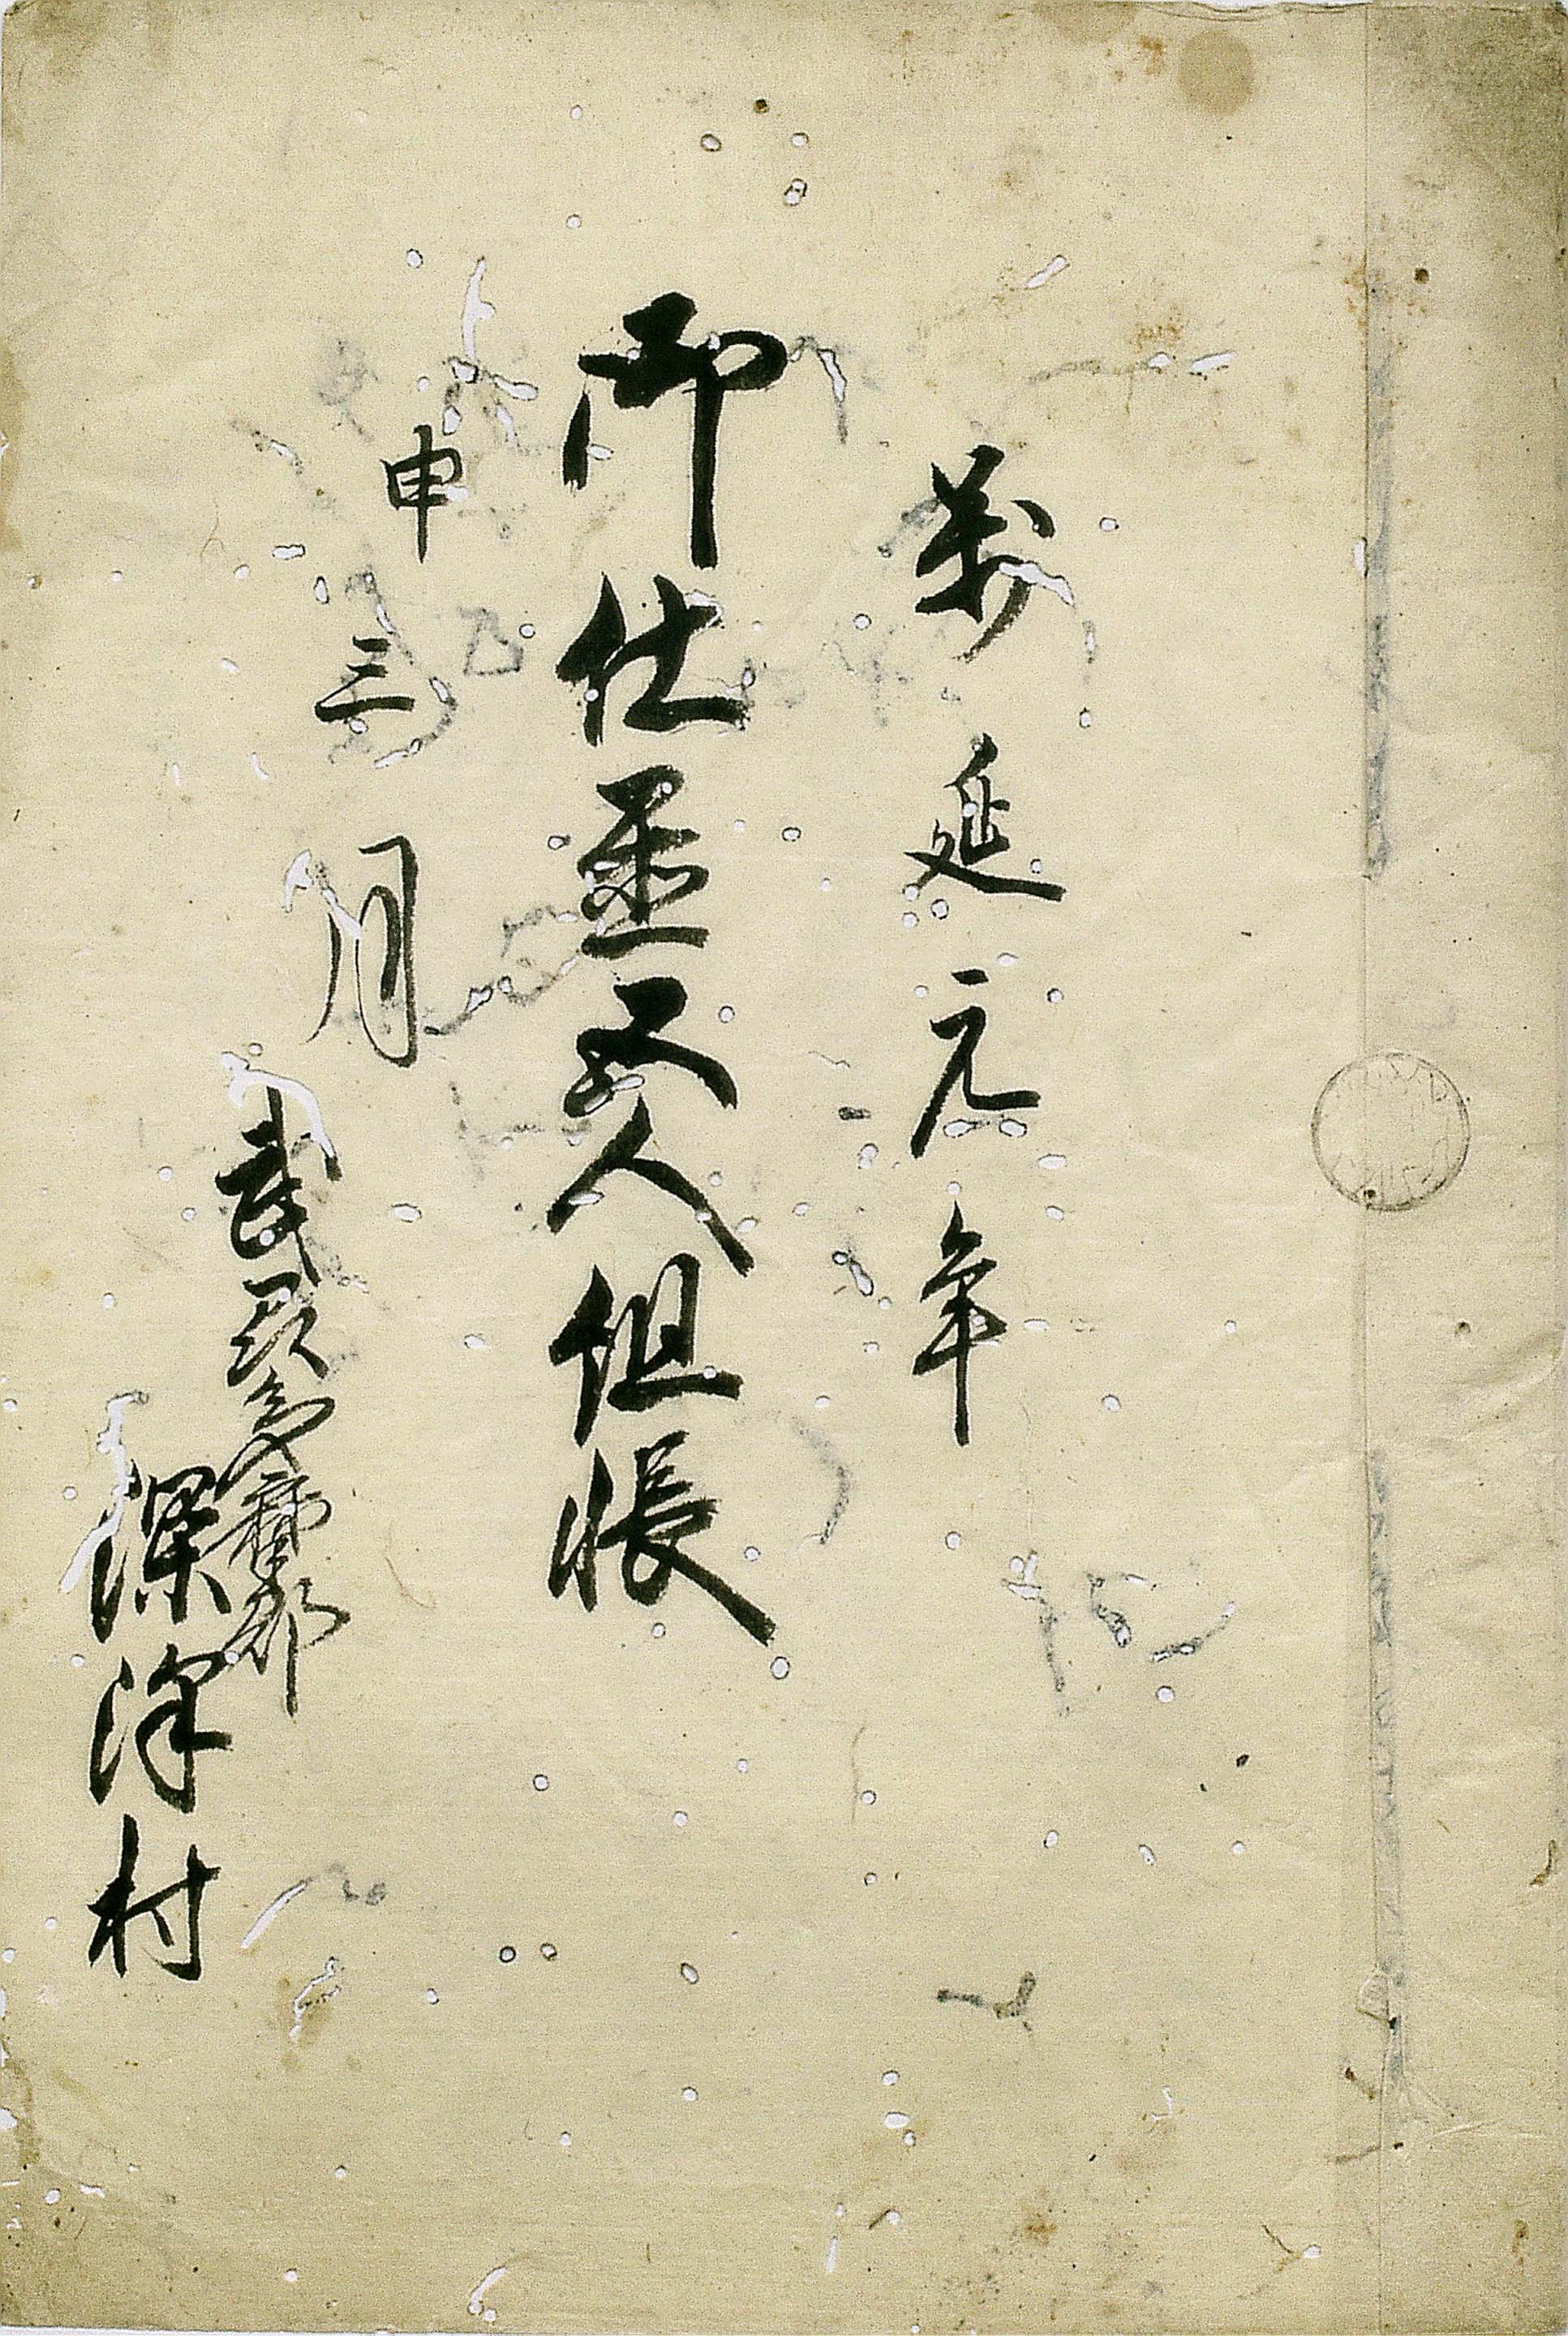 萬延元年
御仕置五人組帳
申三月
武蔵多摩郡
深澤村